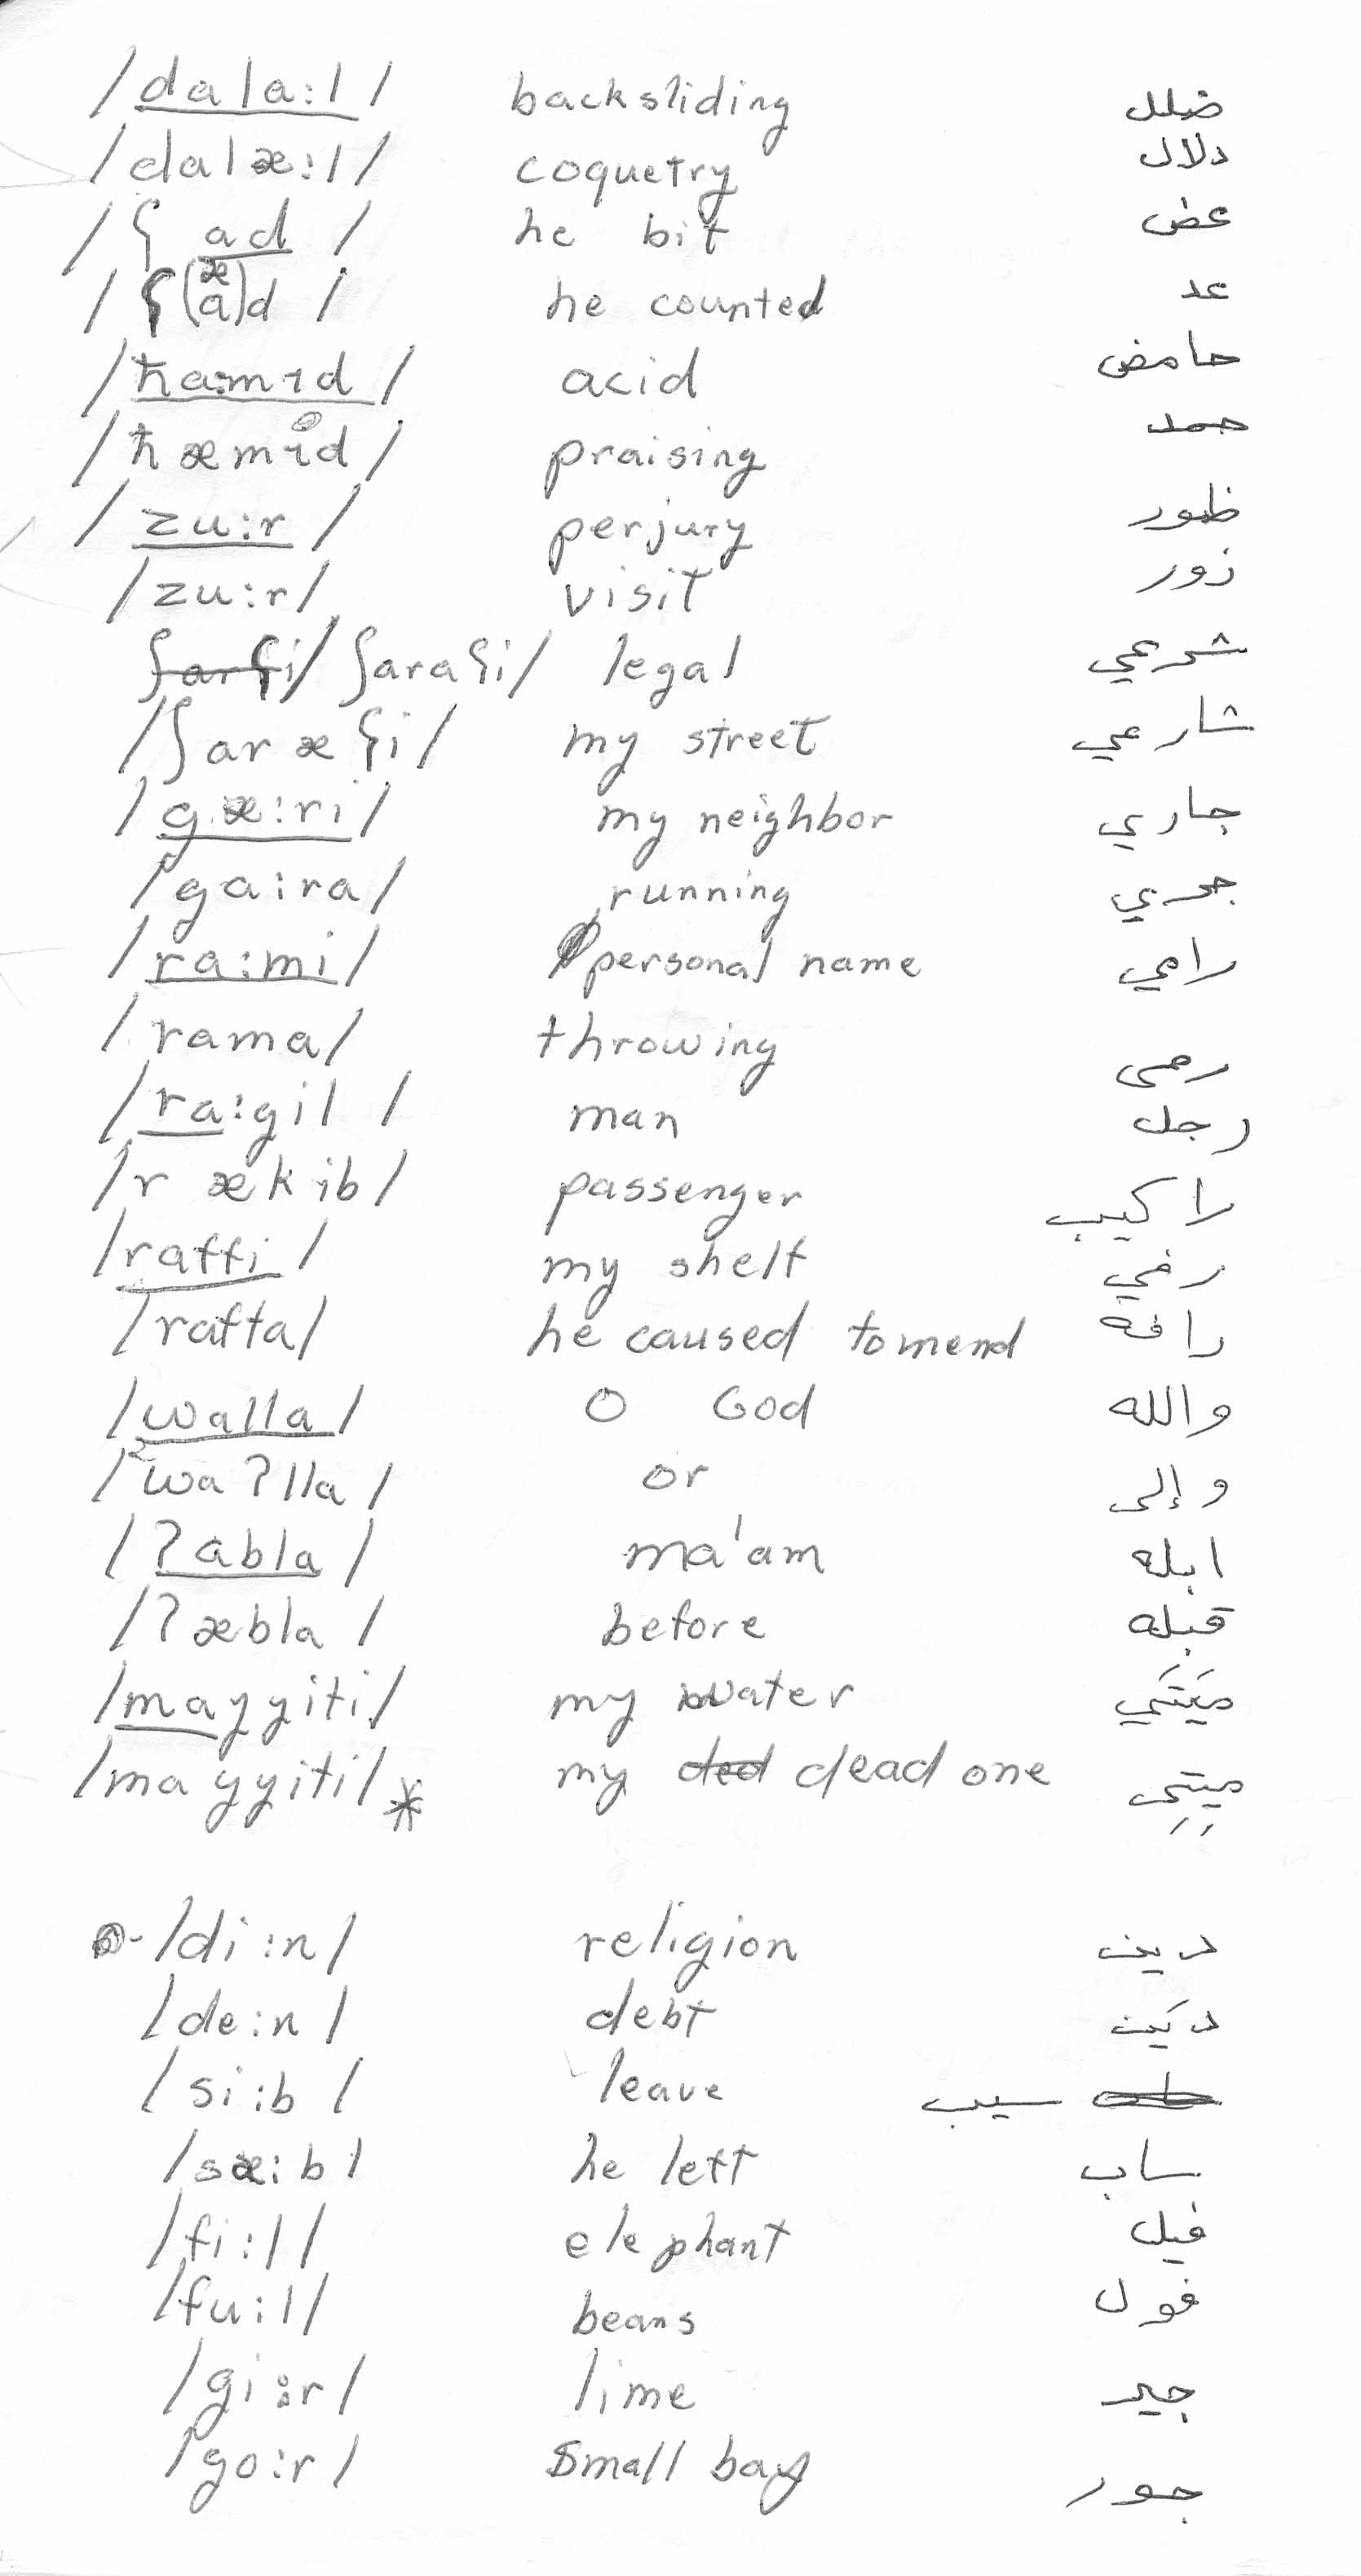 /dala:l/ backsliding ضلل
/dalæ:l/ coquetry دلال
/ʕad/ he bit عض
/ʕ(æ a)d/ he counted عد
/ħa:mɪd/ acid حامض
/ħæmɪd/ praising حمد
/zu:r/ perjury ظور
/zu:r/ visit زور
ʃarʕi/ ʃaraʕi/ legal شرعي
/ʃaræʕi/ my street شارعي
/gæ:ri/ my neighbor جاري
/ga:ra/ running جري
/ra:mi/ personal name رامي
/rama/ throwing رمى
/ra:gil/ man رجل
/rækib/ passenger راكيب
/raffi/ my shelf رفي
/raffa/ he caused to mend رافه
/walla/ O God والله
/waʔlla/ or وإلى
/ʔabla/ ma'am ابله
/ʔæbla/ before قبله
/mayyiti/ my water ميَتَي
/mayyiti/* my ded dead one ميِتِى
/di:n/ religion دين
/de:n/ debt دَين
/si:b/ leave سيب
/sæ:b/ he left ساب
/fi:l/ elephant فيل
/fu:l/ beans فول
/gi:r/ lime جير
/go:r/ small bay جور